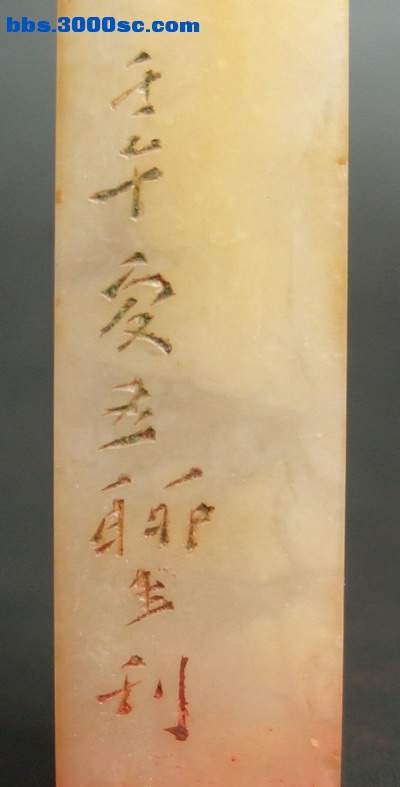 bbs.3000sc.com
壬午夏聊生